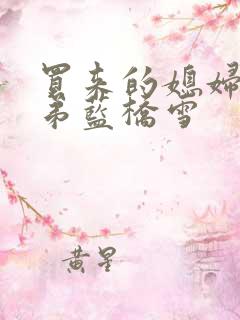 買来的媳婦
弟藍橋雪
黄星